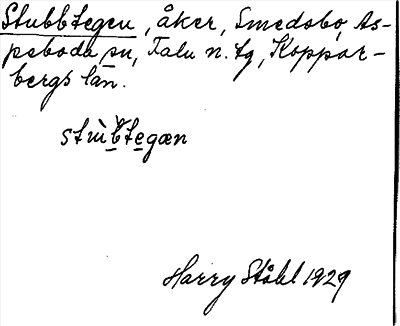 Stubbtegen, åker, Smedsbo, As-
peboda sn, Falu n. tg, Koppar-
bergs län.
stùb̀tegæn
Harry Ståhl 1929